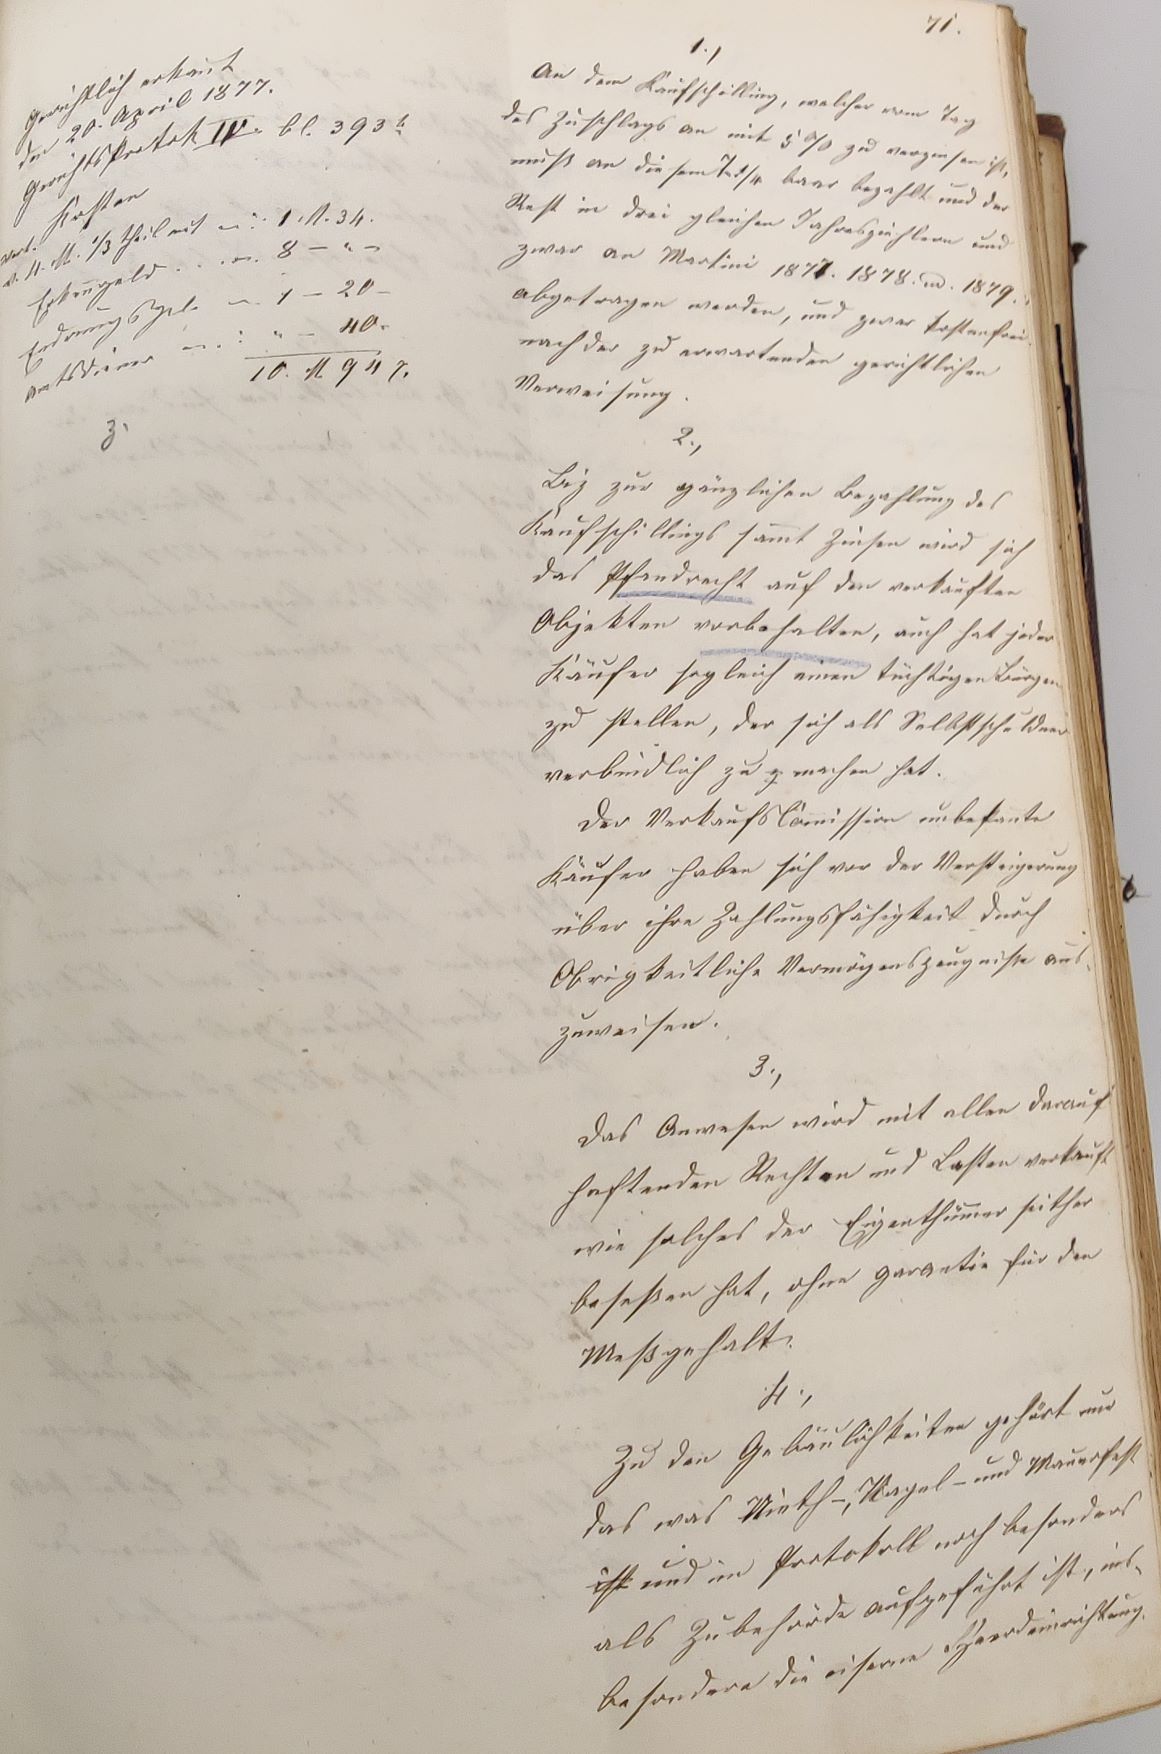 71.
Gerichtlich erkant
den 20. April 1877.
Gerichtsprotok IV. bl. 393 b
Kosten
v. M. 1/3 theil mit 1. M. 34.
Erkenngeld 8 – " –
1 – 20 –
Amtsdiener " – 40.
10. M 94
3.
1.,
An dem Kaufschilling, welcher vom Tag
des Zuschlags an mit 5 % zu verzinsen ist,
muß an diesem Tag 1/4 baar bezahlt und der
Rest in drei gleichen Jahresziehlern und
zwar an Martini 1877. 1878. u. 1879.
abgetragen werden, und zwar kostenfrei
nach der zu erwartenden gerichtlichen
Verweisung.
2.,
Bis zur gänzlichen Bezahlung des
Kaufschillings samt Zinsen wird sich
das Pfandrecht auf den verkauften
Objekten vorbehalten, auch hat jeder
Käufer sogleich einen tüchtigen Bürgen
zu stellen, der sich als Selbstschuldner
verbindlich zu machen hat.
Der Verkaufs Comission unbekante
Käufer haben sich vor der Versteigerung
über ihre Zahlungsfähigkeit durch
Obrigkeitliche Vermögenszeugniße aus-
zuweisen.
3.,
Das Anwesen wird mit allen darauf
haftenden Rechten und Lasten verkauft
wie solches der Eigenthümer seither
beseßen hat, ohne Garantie für den
Meßgehalt.
4.,
Zu den Gebäulichkeiten gehört nur
das was Nieth-, Nagel- und Mauerfest
ist und im Protokoll noch besonders
als Zubehörde aufgeführt ist, ins-
besondere die eiserne Heerdeinrichtung.